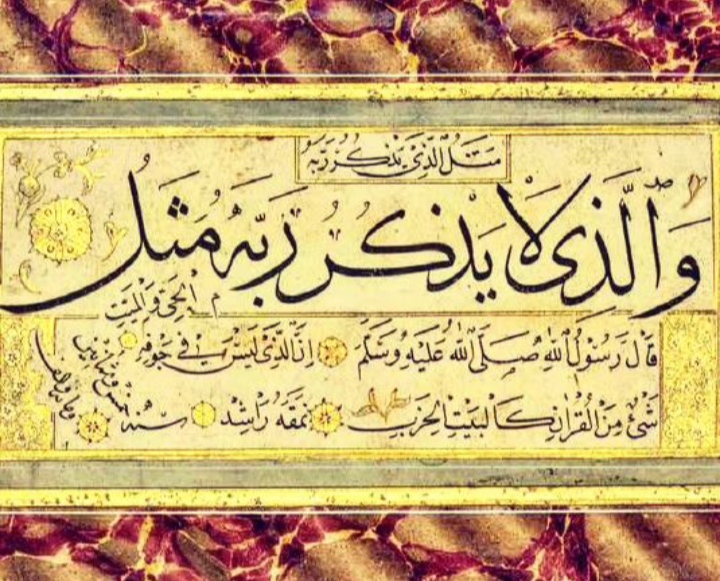 مَثَلُ الَّذِي يَذْكُرُ رَبَّهُ
وَالَّذِى لَا يَذْكُرُ رَبَّهُ مَثَلُ
الْحَيِّ وَالْمَيِّتِ
قَالَ رَسُولُ اللّٰهِ صَلَّى اللّٰهُ عَلَيْهِ وَسَلَّمَ اِنَّ الَّذِى لَيْسَ فِي جَوْفِهِ
شَئٌ مِنَ الْقُرْاٰنِ كَالْبَيْتِ الْخَرِبِ نَمَقَهُ رَاشِد سنة